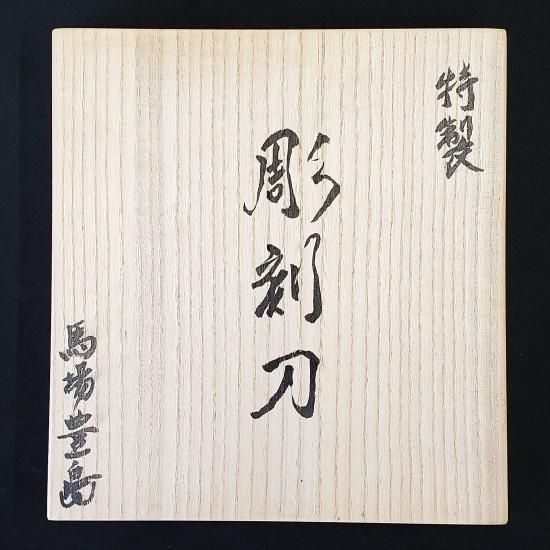 特製
彫刻刀
馬場豊島